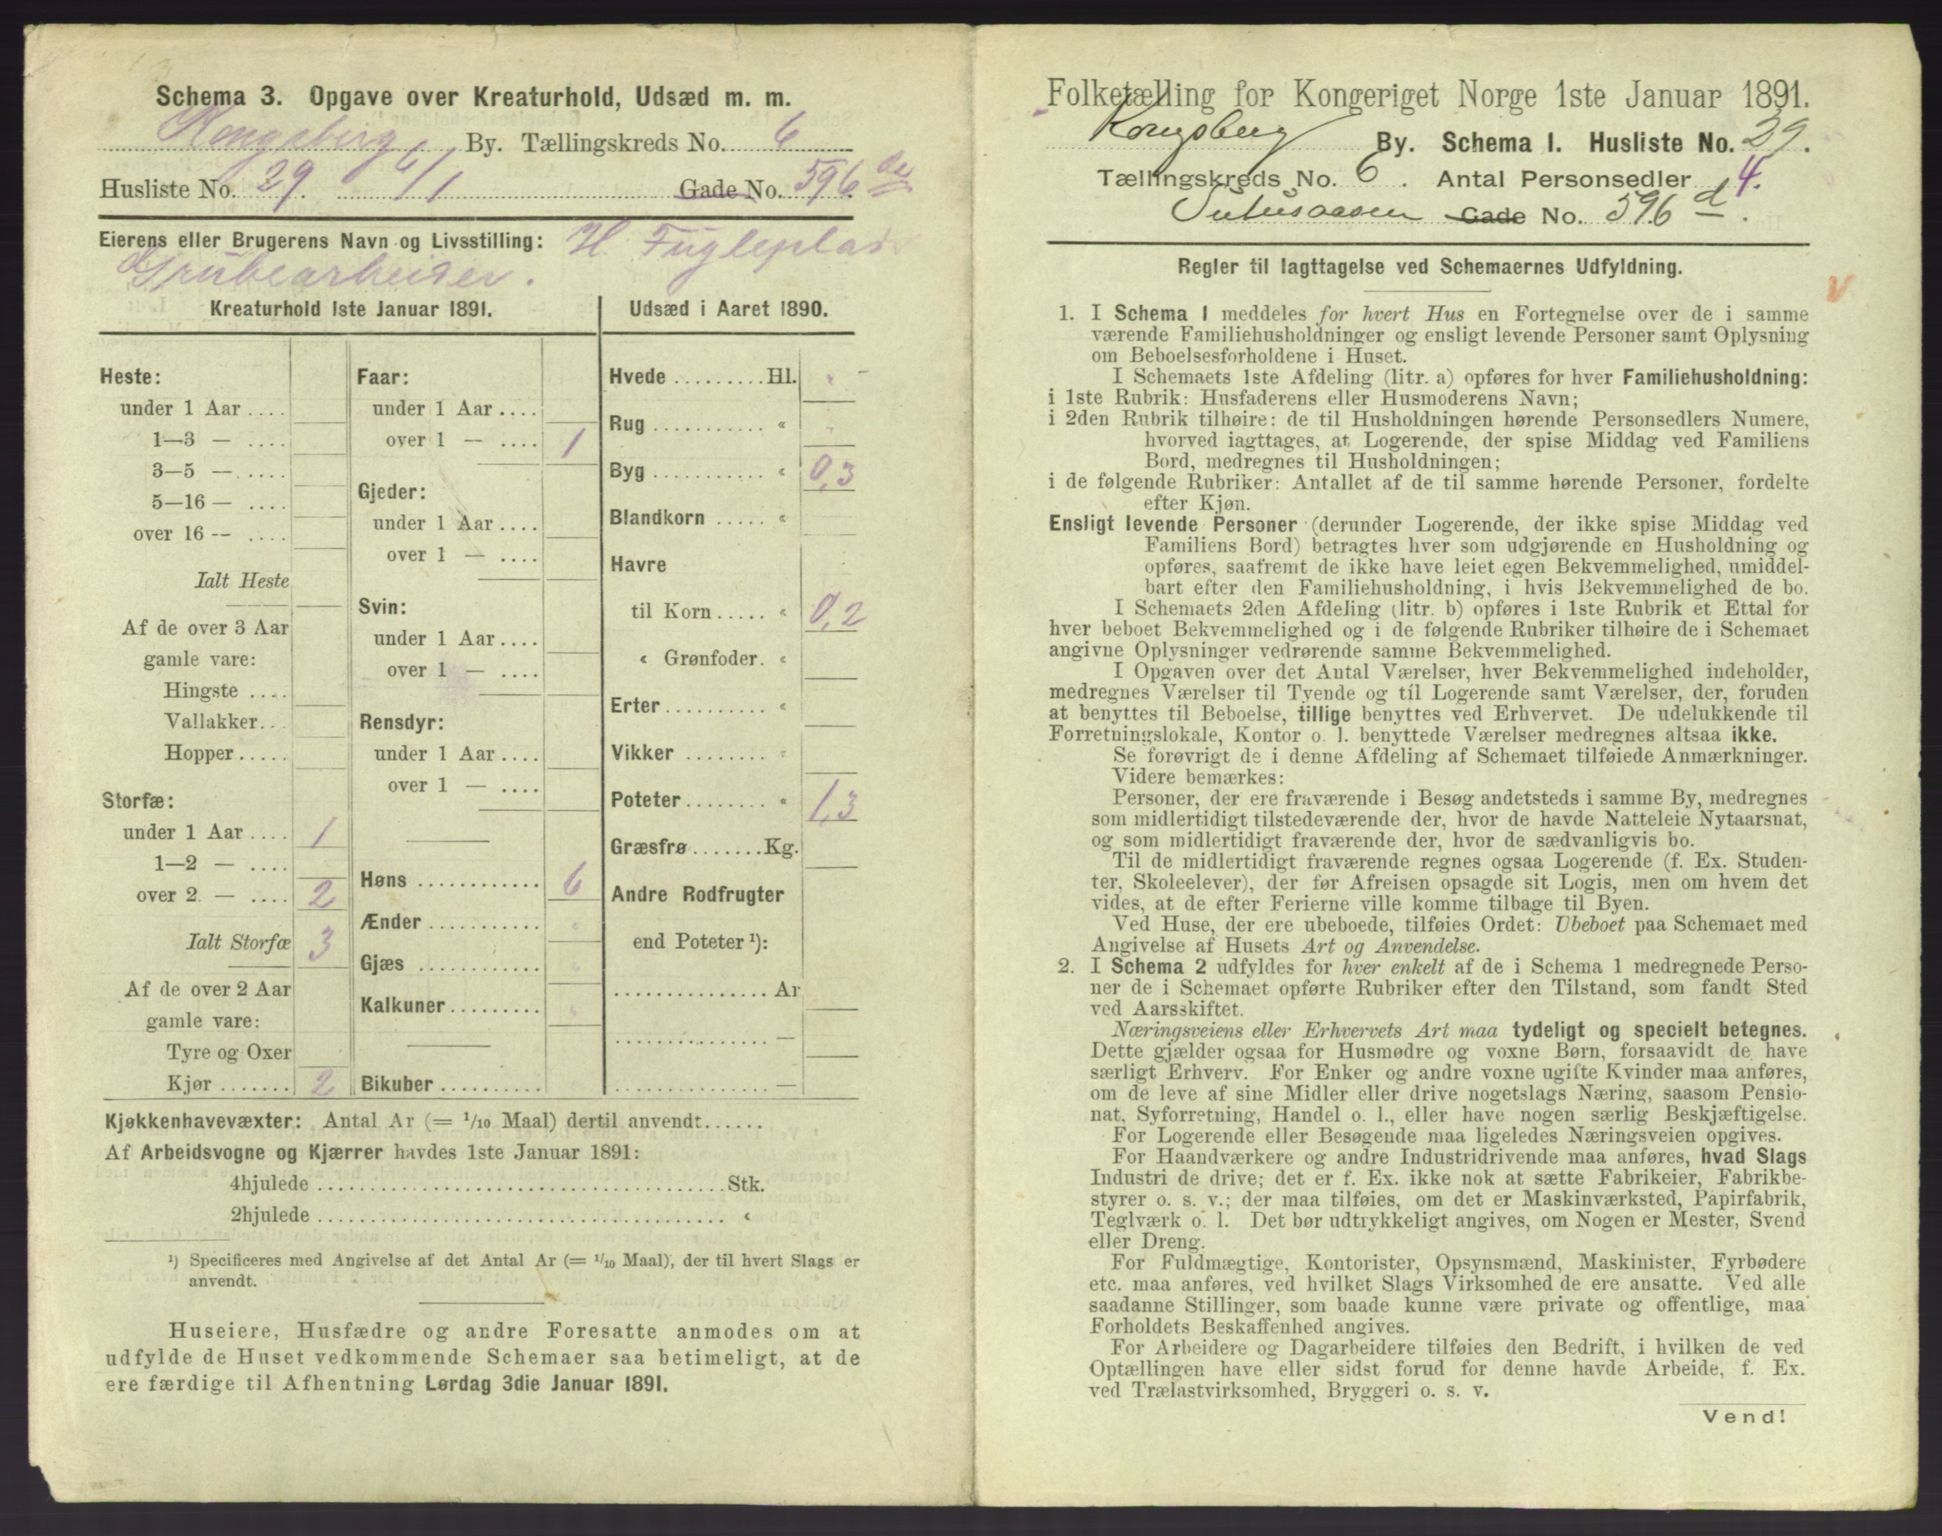 Schema 3. Opgave over Kreaturhold, Udsæd m. m.
Kongsberg By. Tællingskreds No. 6
Husliste No. 29. 6/1 Gade No. 596
Eierens eller Brugerens Navn og Livsstilling: H. Fugleplads
Grubearbeider.
Kreaturhold 1ste Januar 1891.
Heste:
under 1 Aar ....
1—3 — ....
3—5 — ....
5—16 — ....
over 16 -- ....
Ialt Heste
Af de over 3 Aar
gamle vare:
Hingste ....
Vallakker...
Hopper.....
Storfæ:
under 1 Aar .... 1
1—2 — ....
over 2 — .... 2
Ialt Storfæ 3
Af de over 2 Aar
gamle vare:
Tyre og Oxer
Kjør ....... 2
Faar:
under 1 Aar ....
over 1 — .... 1
Gjeder:
under 1 Aar ....
over 1 — ....
Svin:
under 1 Aar ....
over 1 — ....
Rensdyr:
under 1 Aar ....
over 1 — ....
Høns ............ 6
Ænder ...........
Gjæs ............
Kalkuner.........
Bikuber..........
Udsæd i Aaret 1890.
Hvede .........Hl.
Rug ........... «
Byg ........... « 0,3
Blandkorn ..... «
Havre
til Korn..... « 0,2
« Grønfoder. «
Erter.......... «
Vikker ........ «
Poteter........ « 1,3
Græsfrø.......Kg.
Andre Rodfrugter
end Poteter ¹):
...............Ar
...............—
...............—
Kjøkkenhavevæxter: Antal Ar (= 1/10 Maal) dertil anvendt......
Af Arbeidsvogne og Kjærrer havdes 1ste Januar 1891:
4hjulede .......................................Stk.
2hjulede ....................................... «
¹) Specificeres med Angivelse af det Antal Ar (= 1/10 Maal), der til hvert Slags er
anvendt.
Huseiere, Husfædre og andre Foresatte anmodes om at
udfylde de Huset vedkommende Schemaer saa betimeligt, at de
ere færdige til Afhentning Lørdag 3die Januar 1891.
Folketælling for Kongeriget Norge 1ste Januar 1891.
Kongsberg By. Schema 1. Husliste No. 39.
Tællingskreds No. 6. Antal Personsedler 4.
Gade No. 596 d.
Regler til Iagttagelse ved Schemaernes Udfyldning.
1. I Schema 1 meddeles for hvert Hus en Fortegnelse over de i samme
værende Familiehusholdninger og ensligt levende Personer samt Oplysning
om Beboelsesforholdene i Huset.
I Schemaets 1ste Afdeling (litr. a) opføres for hver Familiehusholdning:
i 1ste Rubrik: Husfaderens eller Husmoderens Navn;
i 2den Rubrik tilhøire: de til Husholdningen hørende Personsedlers Numere,
hvorved iagttages, at Logerende, der spise Middag ved Familiens
Bord, medregnes til Husholdningen;
i de følgende Rubriker: Antallet af de til samme hørende Personer, fordelte
efter Kjøn.
Ensligt levende Personer (derunder Logerende, der ikke spise Middag ved
Familiens Bord) betragtes hver som udgjørende en Husholdning og
opføres, saafremt de ikke have leiet egen Bekvemmelighed, umiddel-
bart efter den Familiehusholdning, i hvis Bekvemmelighed de bo.
I Schemaets 2den Afdeling (litr. b) opføres i 1ste Rubrik et Ettal for
hver beboet Bekvemmelighed og i de følgende Rubriker tilhøire de i Schemaet
angivne Oplysninger vedrørende samme Bekvemmelighed.
I Opgaven over det Antal Værelser, hver Bekvemmelighed indeholder,
medregnes Værelser til Tyende og til Logerende samt Værelser, der, foruden
at benyttes til Beboelse, tillige benyttes ved Erhvervet. De udelukkende til
Forretningslokale, Kontor o. l. benyttede Værelser medregnes altsaa ikke.
Se forøvrigt de i denne Afdeling af Schemaet tilføiede Anmærkninger.
Videre bemærkes:
Personer, der ere fraværende i Besøg andetsteds i samme By, medregnes
som midlertidigt tilstedeværende der, hvor de havde Natteleie Nytaarsnat,
og som midlertidigt fraværende der, hvor de sædvanligvis bo.
Til de midlertidigt fraværende regnes ogsaa Logerende (f. Ex. Studen-
ter, Skoleelever), der før Afreisen opsagde sit Logis, men om hvem det
vides, at de efter Ferierne ville komme tilbage til Byen.
Ved Huse, der ere ubeboede, tilføies Ordet: Ubeboet paa Schemaet med
Angivelse af Husets Art og Anvendelse.
2. I Schema 2 udfyldes for hver enkelt af de i Schema 1 medregnede Perso-
ner de i Schemaet opførte Rubriker efter den Tilstand, som fandt Sted
ved Aarsskiftet.
Næringsveiens eller Erhvervets Art maa tydeligt og specielt betegnes.
Dette gjælder ogsaa for Husmødre og voxne Børn, forsaavidt de have
særligt Erhverv. For Enker og andre voxne ugifte Kvinder maa anføres,
om de leve af sine Midler eller drive nogetslags Næring, saasom Pensio-
nat, Syforretning, Handel o. l., eller have nogen særlig Beskjæftigelse.
For Logerende eller Besøgende maa ligeledes Næringsveien opgives.
For Haandværkere og andre Industridrivende maa anføres, hvad Slags
Industri de drive; det er f. Ex. ikke nok at sætte Fabrikeier, Fabrikbe-
styrer o. s. v.; der maa tilføies, om det er Maskinværksted, Papirfabrik,
Teglværk o. l. Det bør udtrykkeligt angives, om Nogen er Mester, Svend
eller Dreng.
For Fuldmægtige, Kontorister, Opsynsmænd, Maskinister, Fyrbødere
etc. maa anføres, ved hvilket Slags Virksomhed de ere ansatte. Ved alle
saadanne Stillinger, som baade kunne være private og offentlige, maa
Forholdets Beskaffenhed angives.
For Arbeidere og Dagarbeidere tilføies den Bedrift, i hvilken de ved
Optællingen have eller sidst forud for denne havde Arbeide, f. Ex.
ved Trælastvirksomhed, Bryggeri o. s. v.
Vend!